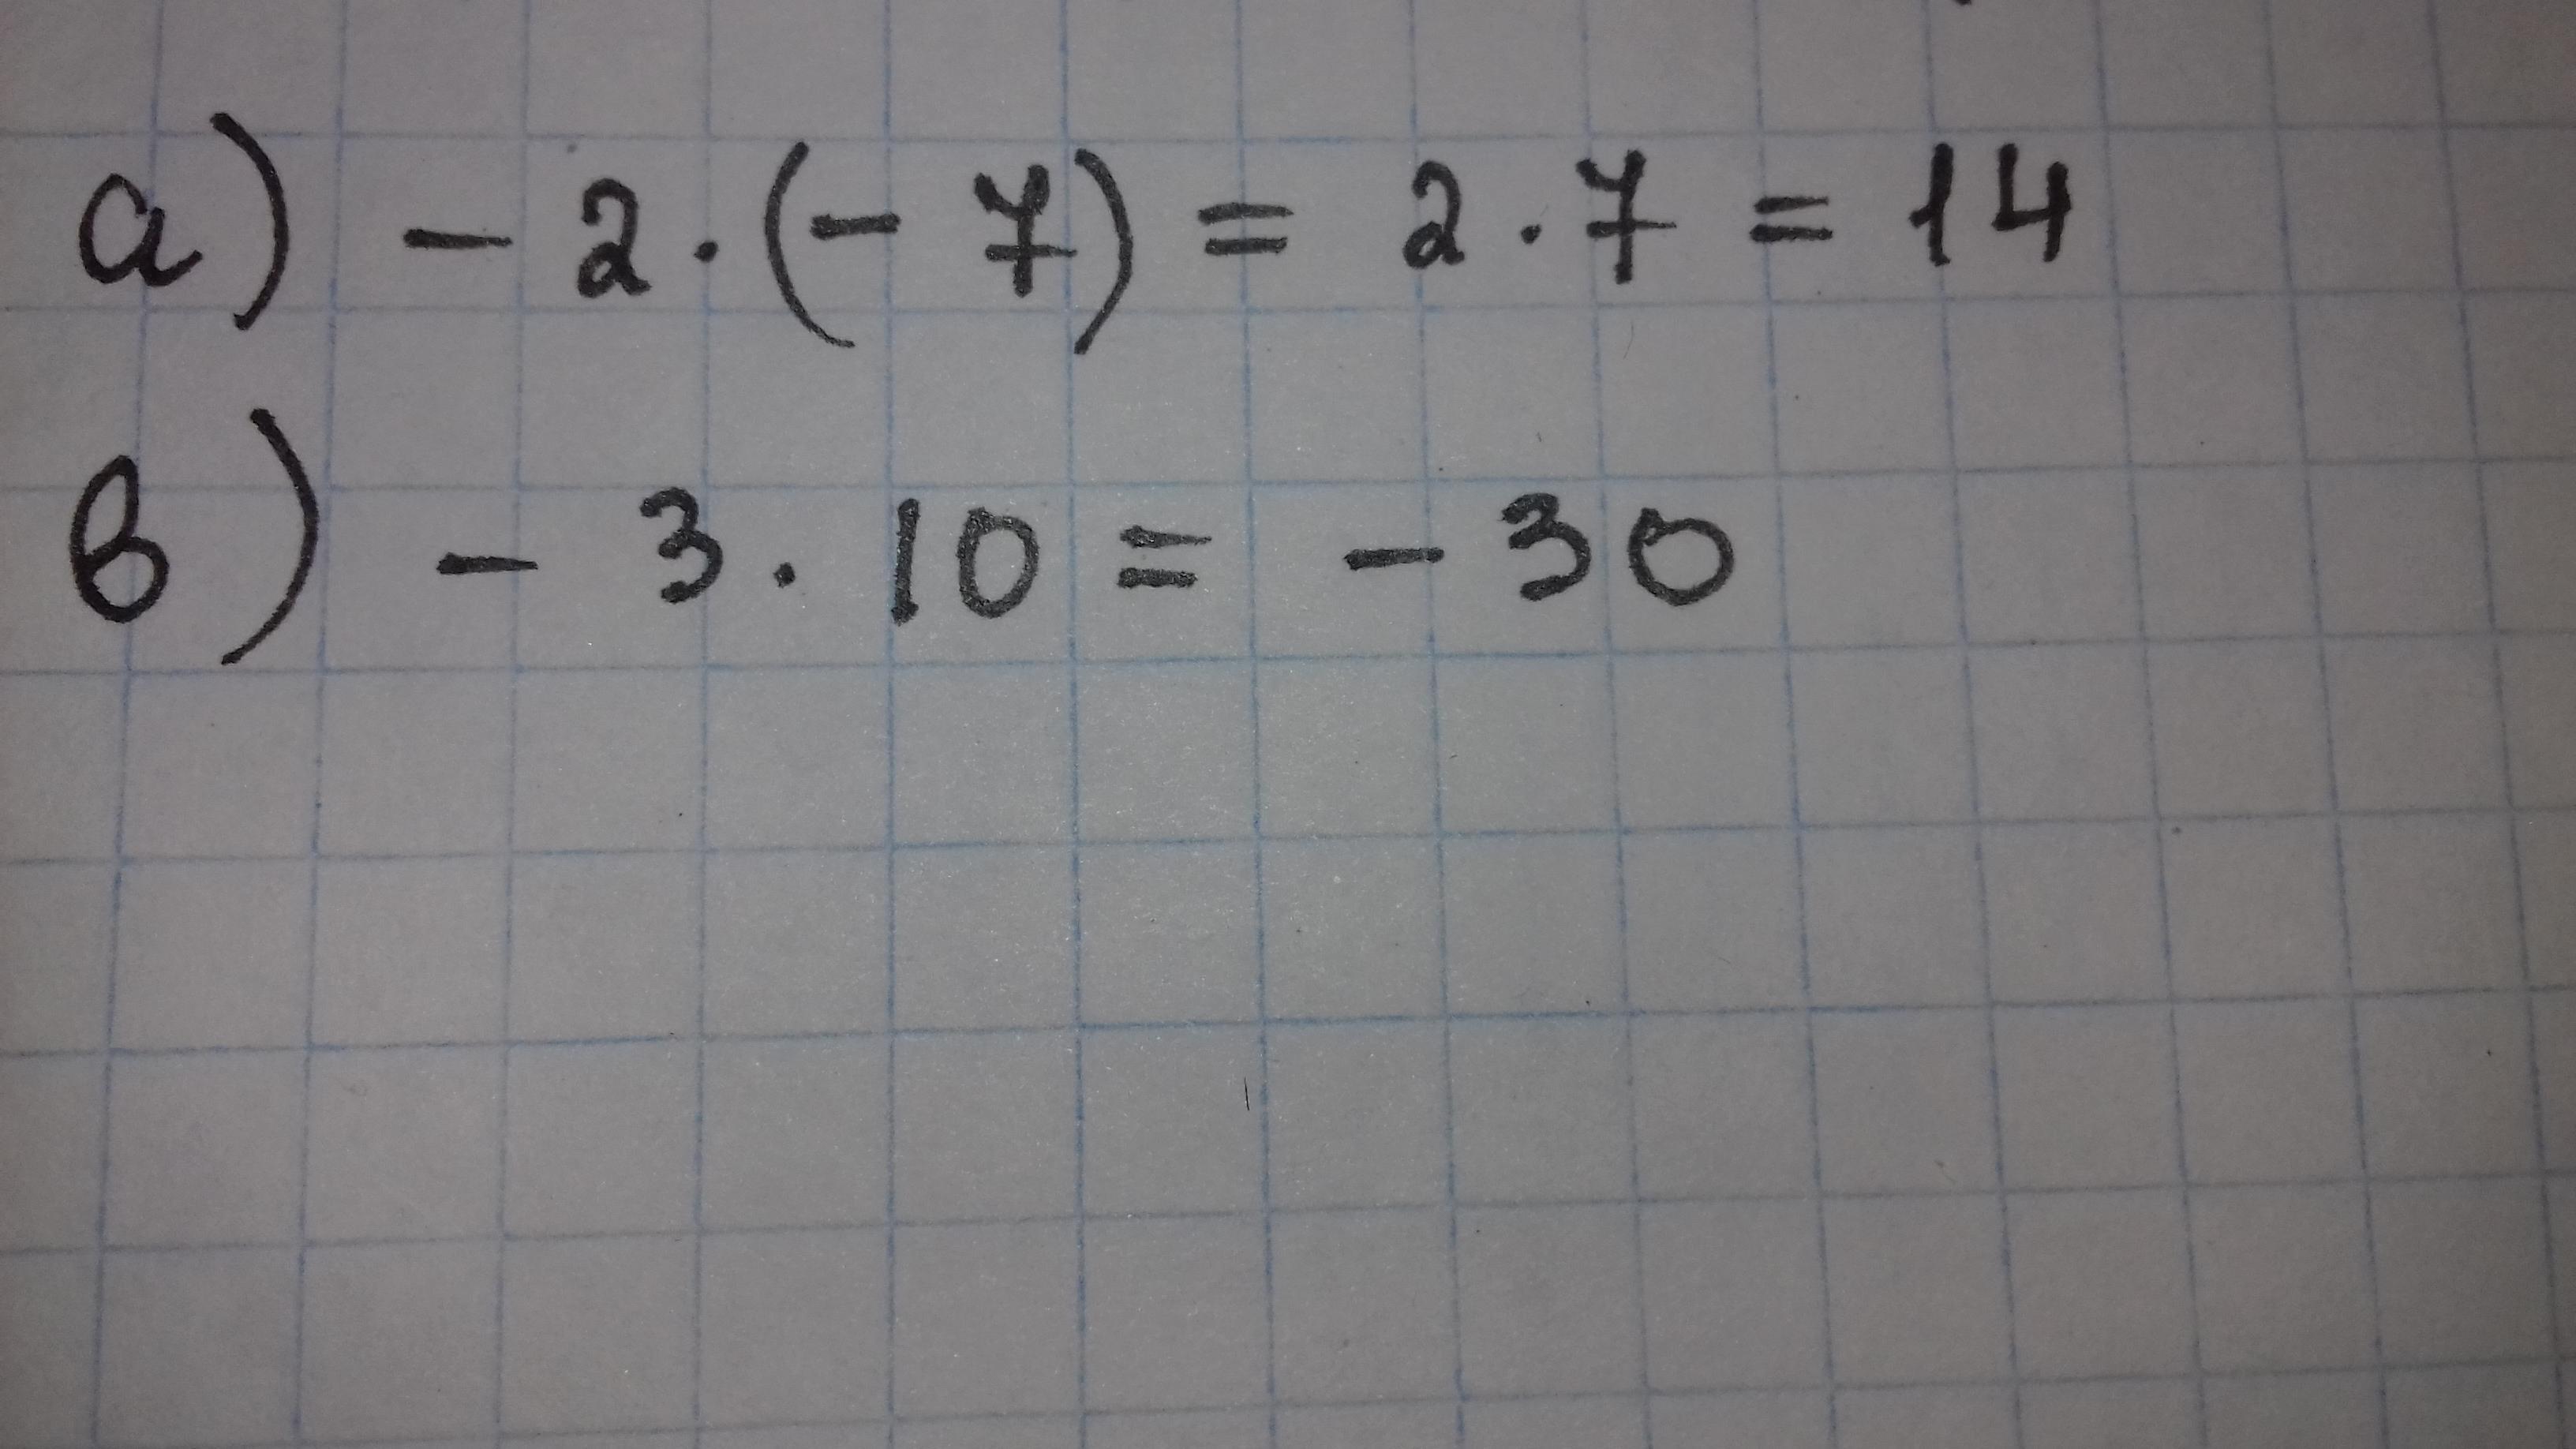 а) - 2 · (- 7) = 2 · 7 = 14
в) - 3 · 10 = - 30